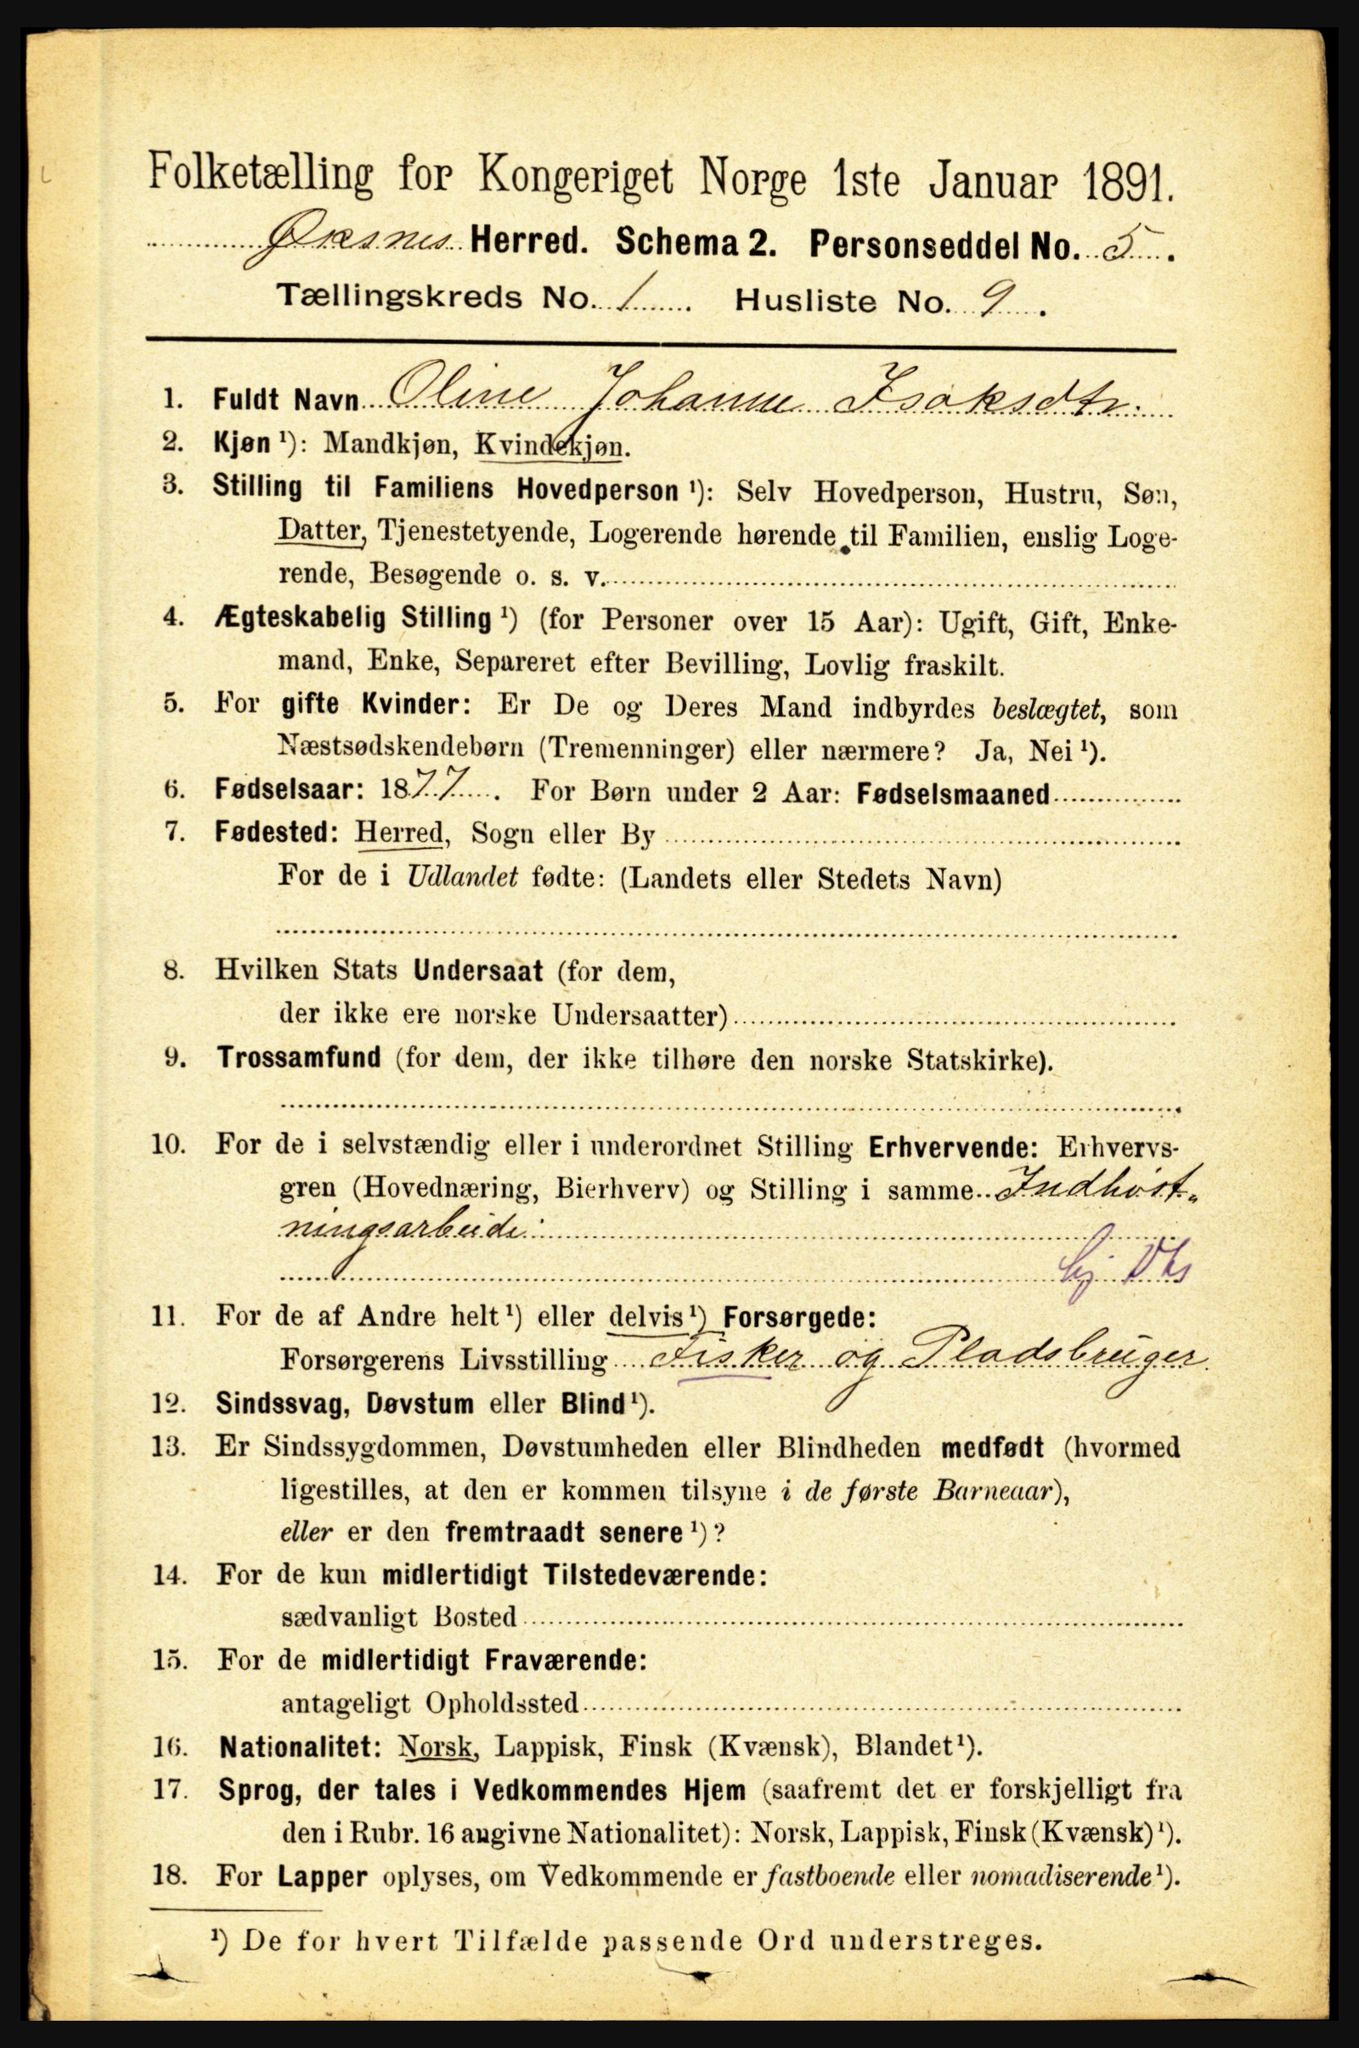 Folketælling for Kongeriget Norge 1ste Januar 1891.
Øksnes Herred. Schema 2. Personseddel No. 5.
Tællingskreds No. 1. Husliste No. 9.
1. Fuldt Navn Oline Johanne Isaksdtr.
2. Kjøn ¹): Mandkjøn, Kvindekjøn.
3. Stilling til Familiens Hovedperson ¹): Selv Hovedperson, Hustru, Søn,
Datter, Tjenestetyende, Logerende hørende til Familien, enslig Loge-
rende, Besøgende o. s. v.
4. Ægteskabelig Stilling ¹) (for Personer over 15 Aar): Ugift, Gift, Enke-
mand, Enke, Separeret efter Bevilling, Lovlig fraskilt.
5. For gifte Kvinder: Er De og Deres Mand indbyrdes beslægtet, som
Næstsødskendebørn (Tremenninger) eller nærmere? Ja, Nei ¹).
6. Fødselsaar: 1877. For Børn under 2 Aar: Fødselsmaaned
7. Fødested: Herred, Sogn eller By
For de i Udlandet fødte: (Landets eller Stedets Navn)
8. Hvilken Stats Undersaat (for dem,
der ikke ere norske Undersaatter)
9. Trossamfund (for dem, der ikke tilhøre den norske Statskirke).
10. For de i selvstændig eller i underordnet Stilling Erhvervende: Erhvervs-
gren (Hovednæring, Bierhverv) og Stilling i samme Indhøst-
ningsarbeide
11. For de af Andre helt ¹) eller delvis ¹) Forsørgede:
Forsørgerens Livsstilling Fisker og Pladsbruger
12. Sindssvag, Døvstum eller Blind ¹).
13. Er Sindssygdommen, Døvstumheden eller Blindheden medfødt (hvormed
ligestilles, at den er kommen tilsyne i de første Barneaar),
eller er den fremtraadt senere ¹)?
14. For de kun midlertidigt Tilstedeværende:
sædvanligt Bosted
15. For de midlertidigt Fraværende:
antageligt Opholdssted
16. Nationalitet: Norsk, Lappisk, Finsk (Kvænsk), Blandet ¹).
17. Sprog, der tales i Vedkommendes Hjem (saafremt det er forskjelligt fra
den i Rubr. 16 angivne Nationalitet): Norsk, Lappisk, Finsk (Kvænsk) ¹).
18. For Lapper oplyses, om Vedkommende er fastboende eller nomadiserende ¹).
¹) De for hvert Tilfælde passende Ord understreges.